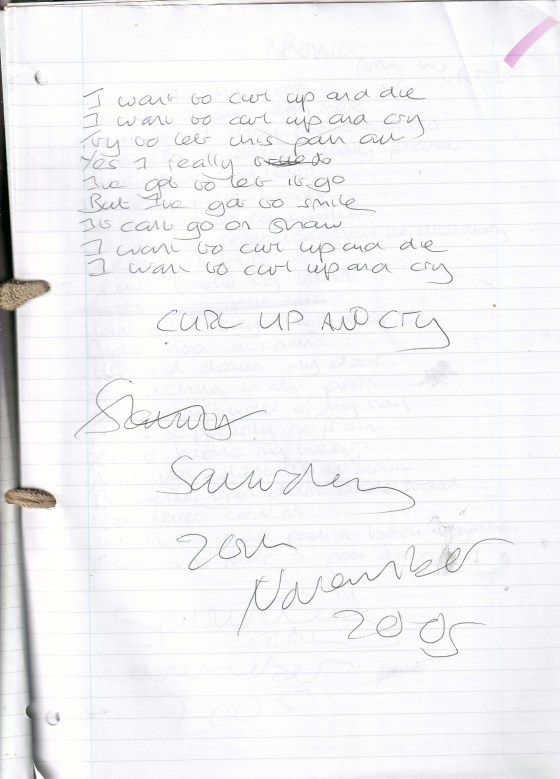 I want to curl up and die
I want to curl up and cry
Try to let this pain out
Yes I really do
I've got to let it go
But I've got to smile
It can't go on show
I want to curl up and die
I want to curl up and cry
CURL UP AND CRY
Saunders
20th
November
2005